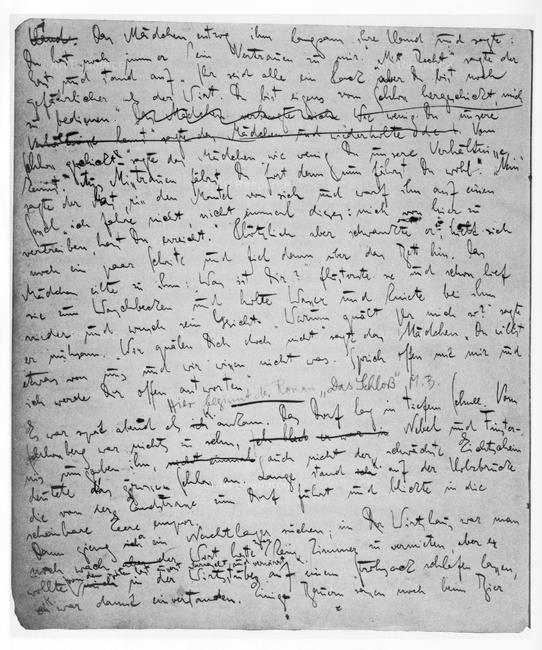 Hand. Das Mädchen entzog ihm langsam ihre Hand und sagte:
Du hast noch immer kein Vertrauen zu mir." "Mit Recht" sagte der
Gast und stand auf. "Ihr seid alle ein Pack aber Du bist noch
gefährlicher als der Wirt. Du bist eigens vom Schloss hergeschickt, mich
zu bedienen." Wie wenig Du unsere
Verhältnisse kennst" sagte das Mädchen und "Vom
Schloss geschickt" sagte das Mädchen "wie wenig Du unsere Verhältnisse
kennst. Aus Misstrauen fährst Du fort denn nun fährst Du wohl." "Nein"
sagte der Gast, riss den Mantel von sich und warf ihn auf einen
Sessel, "ich fahre nicht, nicht einmal dieses: mich von hier zu
vertreiben, hast Du erreicht." Plötzlich aber schwankte er, hielt sich
noch ein paar Schritte und fiel dann über das Bett hin. Das
Mädchen eilte zu ihm: "Was ist Dir?" flüsterte sie und schon lief
sie zum Waschbecken und holte Wasser und kniete bei ihm
nieder und wusch sein Gesicht. "Warum quält Ihr mich so?" sagte
er mühsam. "Wir quälen Dich doch nicht" sagte das Mädchen "Du willst
etwas von uns und wir wissen nicht was. Sprich offen mit mir und
ich werde Dir offen antworten."
Hier beginnt der Roman "Das Schloß" M.B.
Es war spät abend als ich ankam. Das Dorf lag in tiefem Schnee. Vom
Schlossberg war nichts zu sehen, Nebel und Finster-
nis umgaben ihn, auch nicht der schwächste Lichtschein
deutete das grosse Schloss an. Lange stand ich auf der Holzbrücke
die von der Landstrasse zum Dorf führt und blickte in die
scheinbare Leere empor.
Dann gieng ich ein Nachtlager suchen; im Wirtshaus war man
noch wach, der Wirt hatte zwar kein Zimmer zu vermieten, aber er
wollte in der Wirtsstube auf einem Strohsack schlafen lassen,
ich war damit einverstanden. Einige Bauern waren noch beim Bier